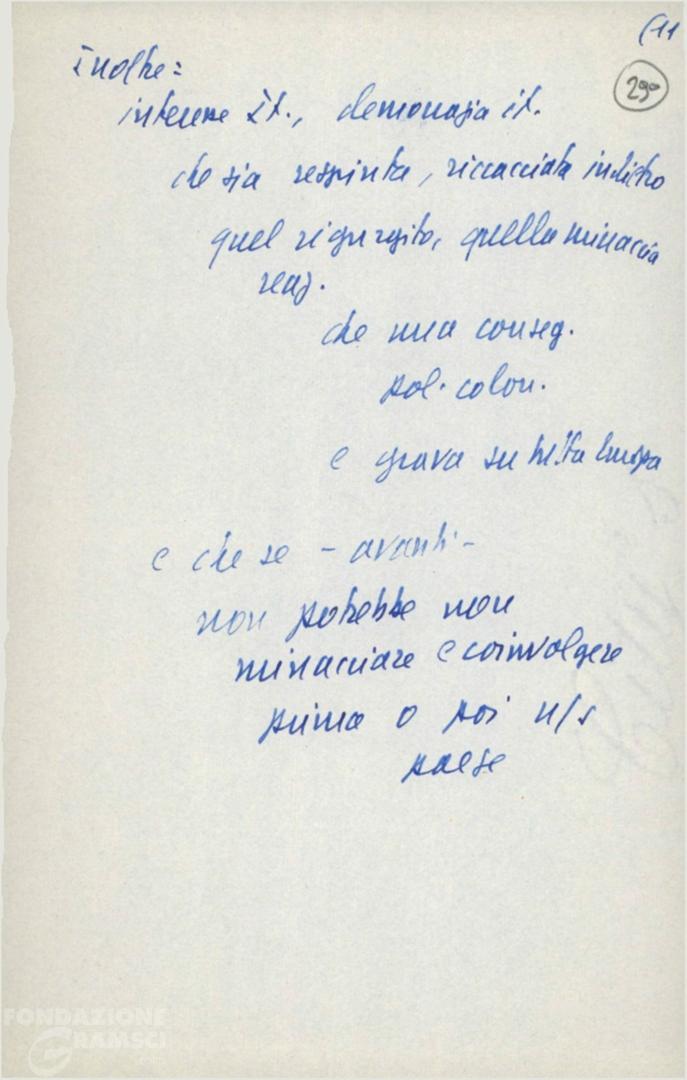 (11
290
Inoltre:
interesse It., democrazia it.
che sia respinta, riccacciata indietro
quel rigurgito, quella minaccia
reaz.
che una conseg.
pol. colon.
e grava su tutta Europa
e che se - avanti -
non potrebbe non
minacciare e coinvolgere
prima o poi n/s
paese
FONDAZIONE
GRAMSCI